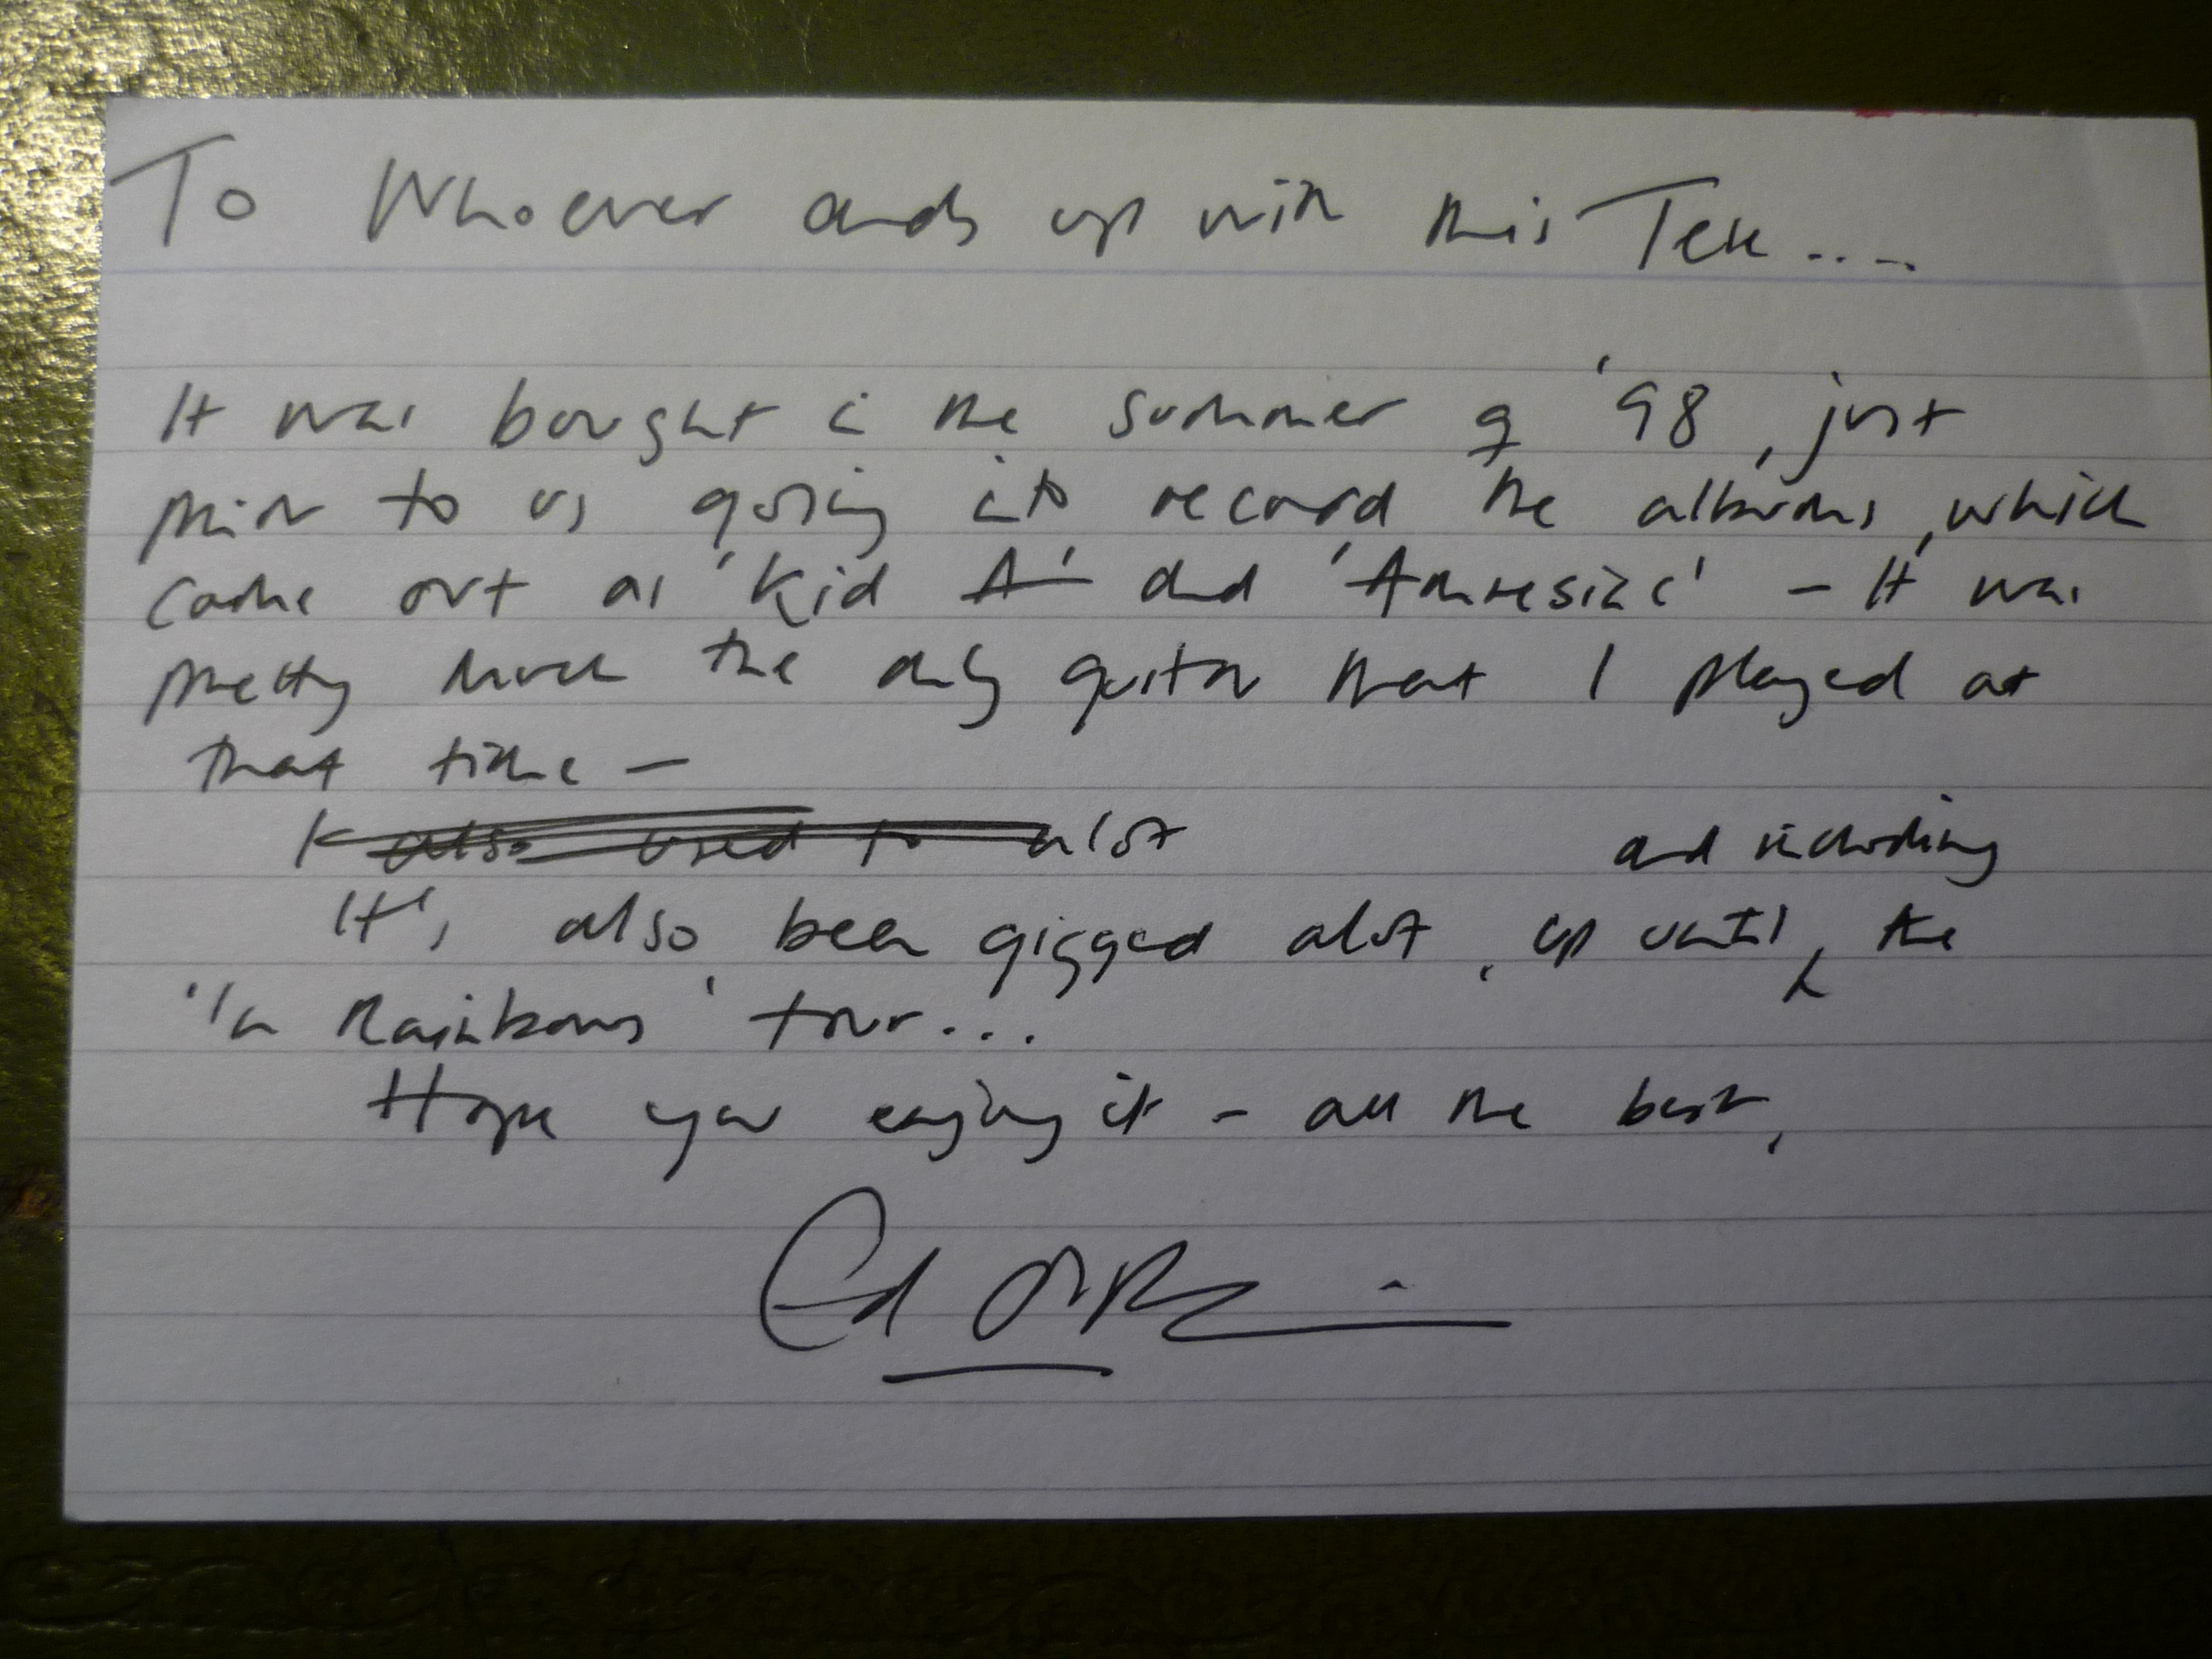 To Whoever ends up with this Tele....
It was bought in the summer of '98, just
prior to us going into record the albums, which
came out as 'Kid A' and 'Amnesiac' - It was
pretty much the only guitar that I played at
that time -
I also used to alot
and including
It's also been gigged alot, up until the
'In Rainbows' tour...
Hope you enjoy it - all the best,
Ed O'Brien